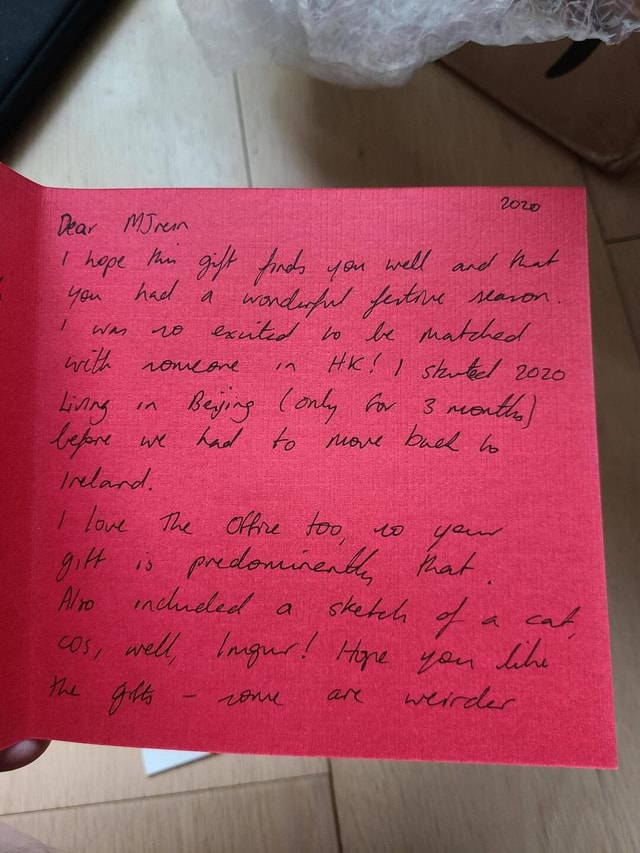 2020
Dear MJrein
I hope this gift finds you well and that
you had a wonderful festive season.
I was so excited to be matched
with someone in HK! I started 2020
Living in Beijing (only for 3 months)
before we had to move back to
Ireland.
I love The Office too, so your
gift is predominently that.
Also included a sketch of a cat,
cos, well, Imgur! Hope you like
the gifts – some are weirder